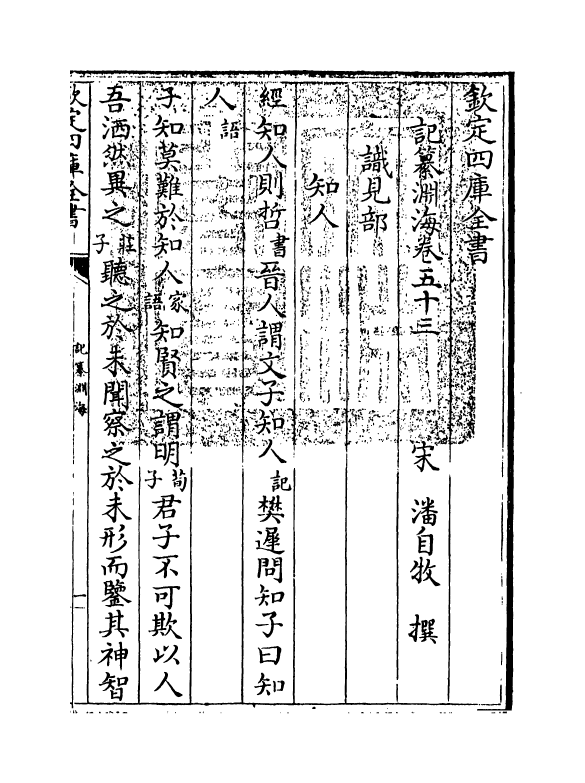 欽定四庫全書
記纂淵海卷五十三
宋 潘自牧 撰
識見部
知人
經知人則哲書晉人謂文子知人記樊遲問知子曰知
人語
子知莫難於知人家語知賢之謂明荀子君子不可欺以人
吾洒然異之莊子聽之於未聞察之於未形而鑒其神智
欽定四庫全書
記纂淵海
一